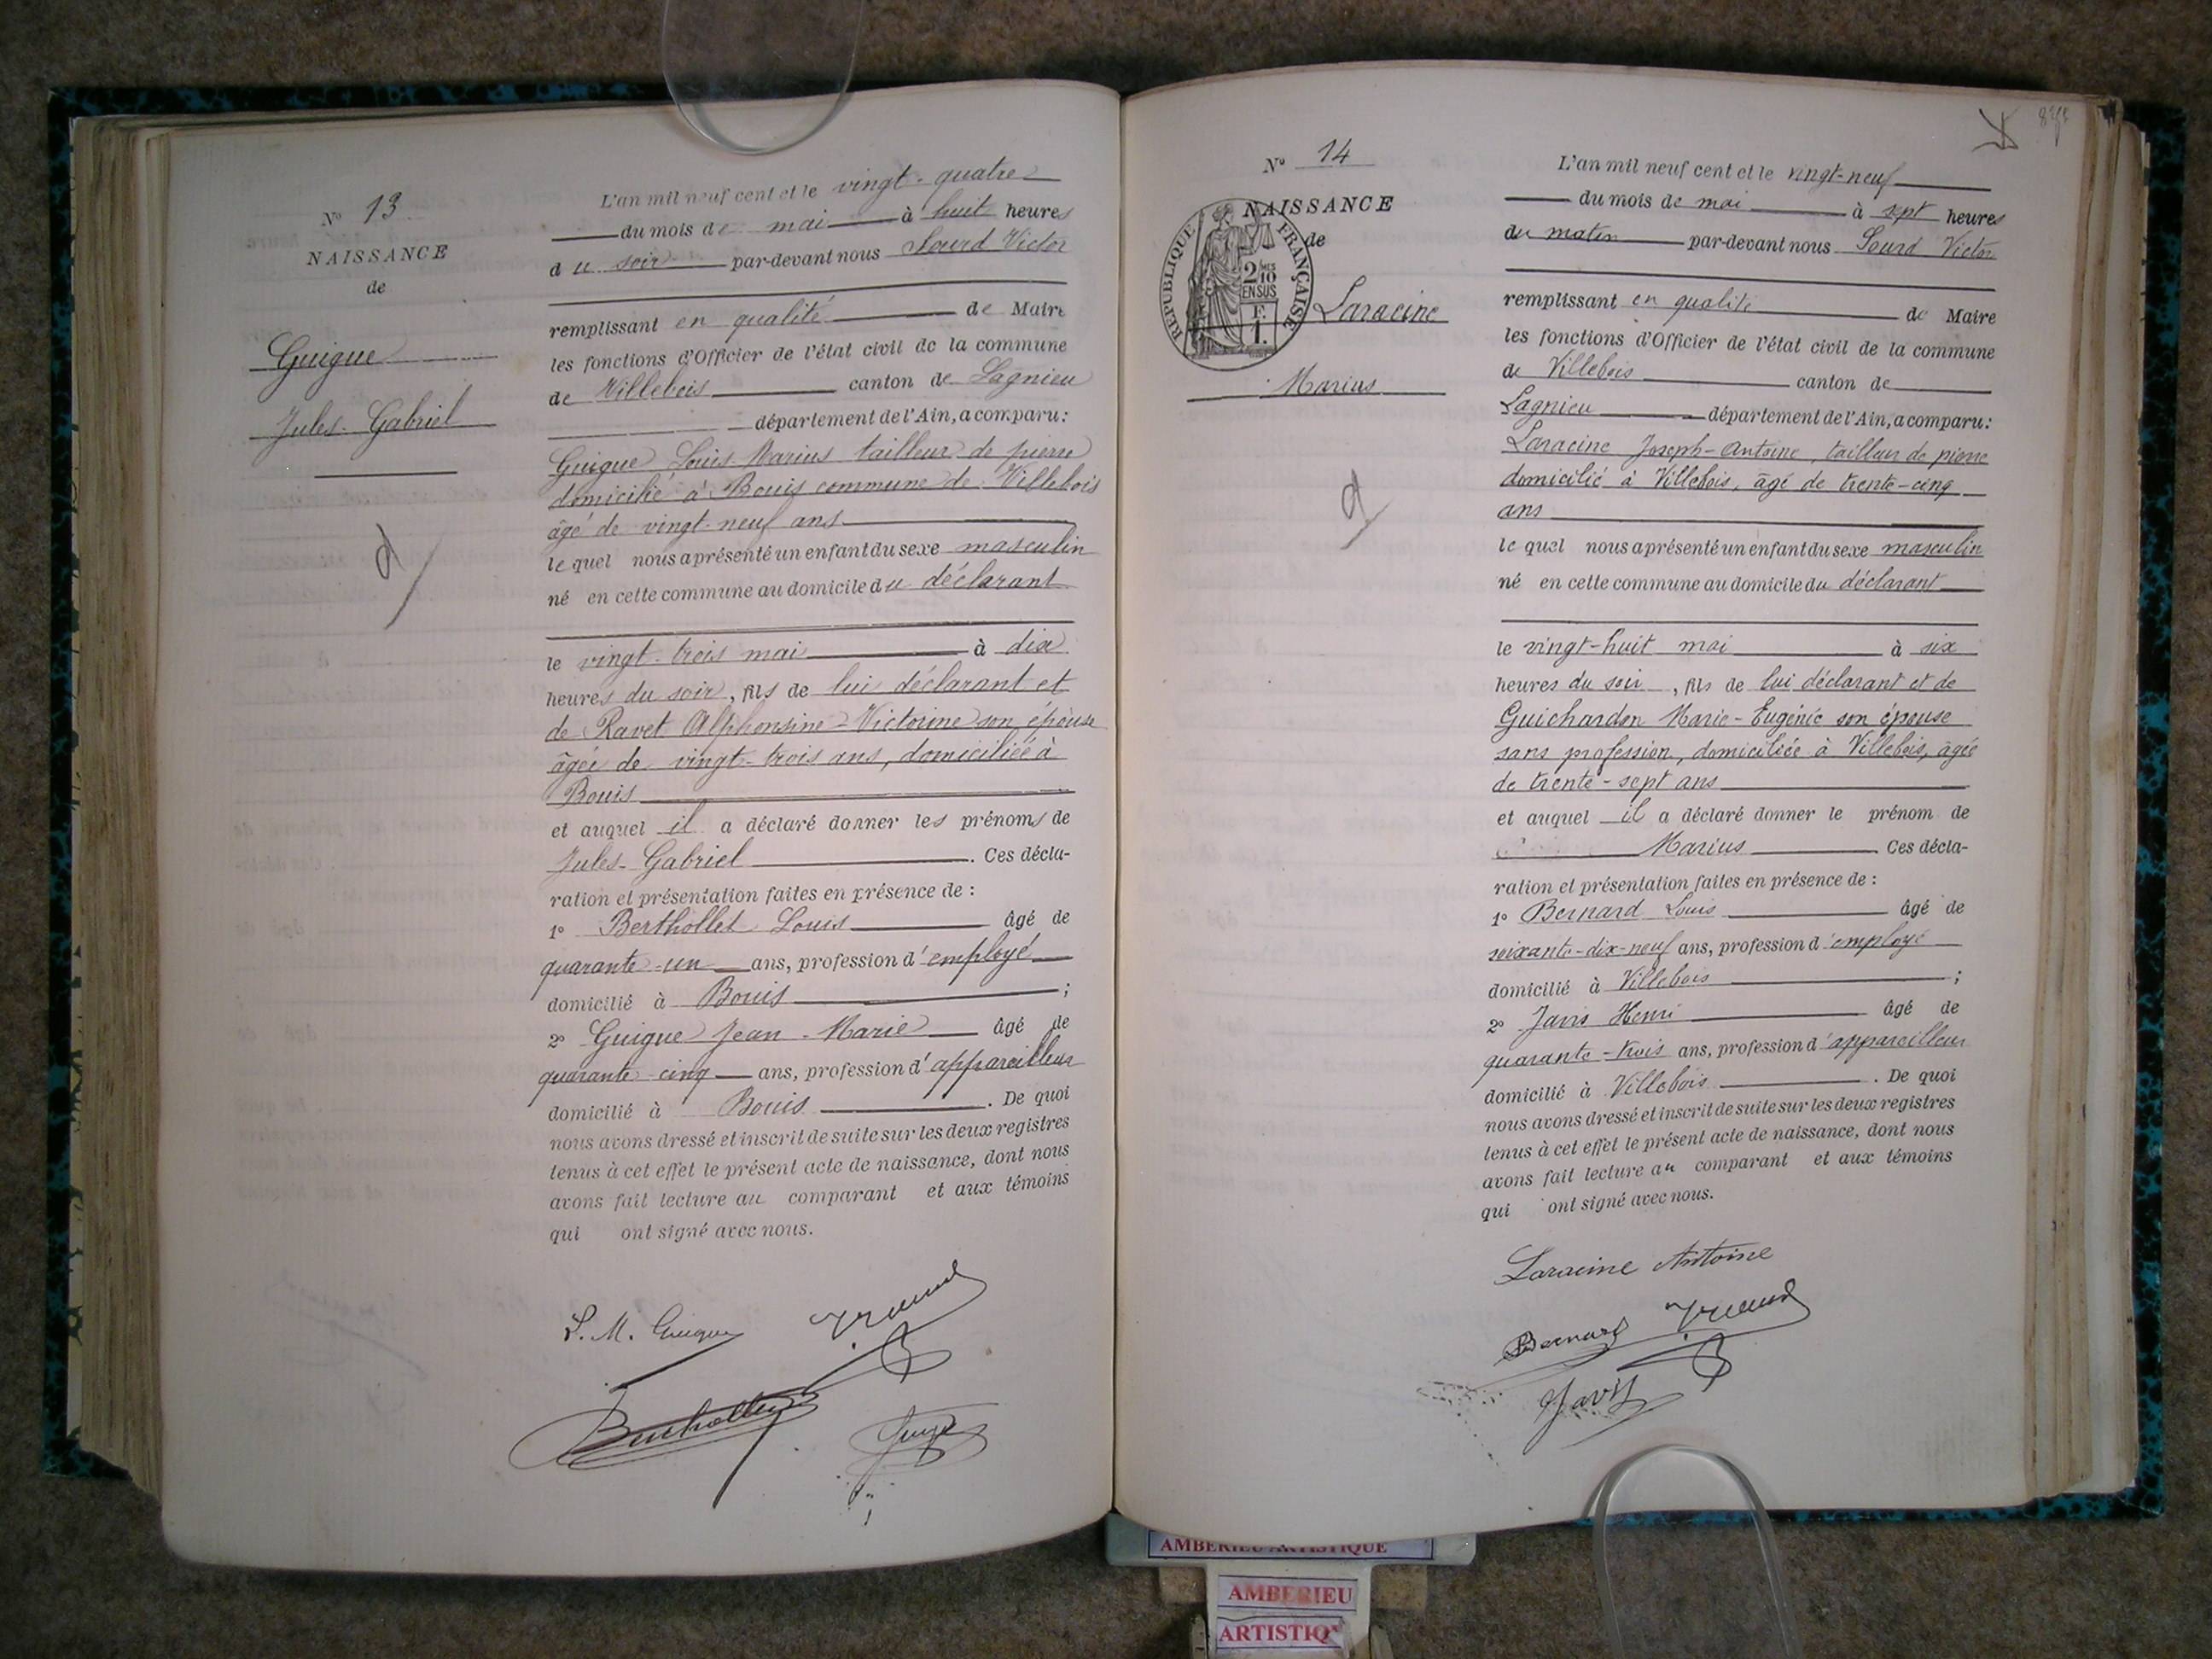 N° 13
NAISSANCE
de
Guigue
Jules-Gabriel
L'an mil neuf cent et le vingt-quatre
du mois de mai à huit heures
du soir par-devant nous Sourd Victor
remplissant en qualité de Maire
les fonctions d'Officier de l'état civil de la commune
de Villebois canton de Lagnieu
département de l'Ain, a comparu:
Guigue Louis Marius tailleur de pierre
domicilié à Bouis commune de Villebois
âgé de vingt-neuf ans
lequel nous a présenté un enfant du sexe masculin
né en cette commune au domicile du déclarant
le vingt-trois mai à dix
heures du soir, fils de lui déclarant et
de Ravet Alphonsine-Victorine son épouse
âgée de vingt-trois ans, domiciliée à
Bouis
et auquel il a déclaré donner les prénoms de
Jules-Gabriel. Ces décla-
ration et présentation faites en présence de :
1° Berthollet Louis âgé de
quarante-un ans, profession d'employé
domicilié à Bouis ;
2° Guigue Jean-Marie âgé de
quarante-cinq ans, profession d'appareilleur
domicilié à Bouis. De quoi
nous avons dressé et inscrit de suite sur les deux registres
tenus à cet effet le présent acte de naissance, dont nous
avons fait lecture au comparant et aux témoins
qui ont signé avec nous.
L. M. Guigue
Berthollet
N° 14
NAISSANCE
de
RÉPUBLIQUE FRANÇAISE
2/10 MES
EN SUS
F.
1.
Laracine
Marius
L'an mil neuf cent et le vingt-neuf
du mois de mai à sept heures
du matin par-devant nous Sourd Victor
remplissant en qualité de Maire
les fonctions d'Officier de l'état civil de la commune
de Villebois canton de
Lagnieu département de l'Ain, a comparu:
Laracine Joseph-Antoine, tailleur de pierre
domicilié à Villebois, âgé de trente-cinq
ans
lequel nous a présenté un enfant du sexe masculin
né en cette commune au domicile du déclarant
le vingt-huit mai à six
heures du soir, fils de lui déclarant et de
Guichardon Marie-Eugénie son épouse
sans profession, domiciliée à Villebois, âgée
de trente-sept ans
et auquel il a déclaré donner le prénom de
Marius Ces décla-
ration et présentation faites en présence de :
1° Bernard Louis âgé de
soixante-dix-neuf ans, profession d'employé
domicilié à Villebois ;
2° Javis Henri âgé de
quarante-trois ans, profession d'appareilleur
domicilié à Villebois. De quoi
nous avons dressé et inscrit de suite sur les deux registres
tenus à cet effet le présent acte de naissance, dont nous
avons fait lecture au comparant et aux témoins
qui ont signé avec nous.
Laracine Antoine
Bernard
Javis
AMBERIEU ARTISTIQUE
AMBERIEU
ARTISTIQ